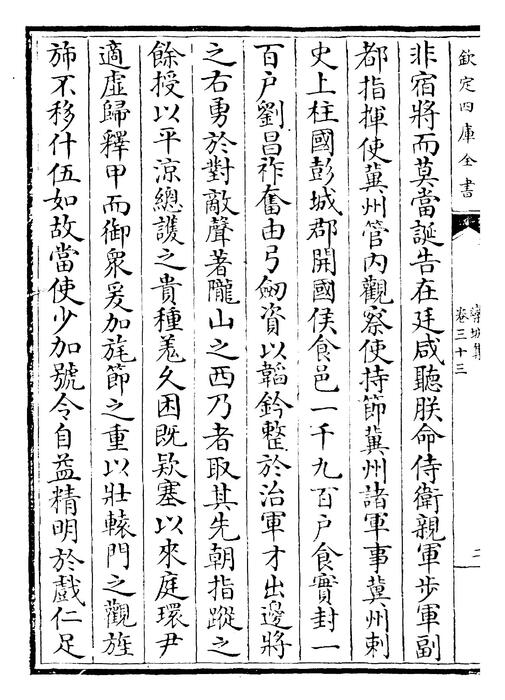 欽定四庫全書
欒城集
卷三十三
二
非宿將而莫當誕告在廷咸聽朕命侍衛親軍步軍副
都指揮使冀州管内觀察使持節冀州諸軍事冀州刺
史上柱國彭城郡開國侯食邑一千九百户食實封一
百户劉昌祚奮由弓劒資以韜鈐整於治軍才出邊將
之右勇於對敵聲著隴山之西乃者取其先朝指蹤之
餘授以平涼總護之貴種羗久困既欵塞以來庭環尹
適虚歸釋甲而御衆爰加旄節之重以壯轅門之觀旌
斾不移什伍如故當使少加號令自益精明於戲仁足